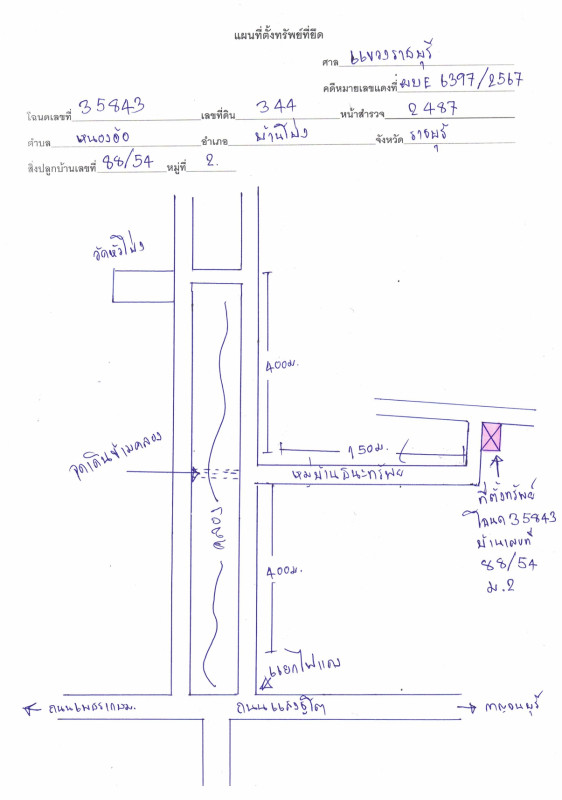 แผนที่ตั้งทรัพย์ที่ยึด
ศาล แขวงราชบุรี
คดีหมายเลขแดงที่ ผบE 6397/2567
โฉนดเลขที่ 35843 เลขที่ดิน 344 หน้าสำรวจ 2487
ตำบล หนองอ้อ อำเภอ บ้านโป่ง จังหวัด ราชบุรี
สิ่งปลูกบ้านเลขที่ 88/54 หมู่ที่ 2.
วัดหัวโป่ง
400ม.
150ม.
จุดเดินข้ามคลอง
หมู่บ้านธนะทรัพย์
ที่ตั้งทรัพย์
โฉนด 35843
บ้านเลขที่
88/54
ม.2
คลอง
400ม.
แยกไฟแดง
ถนนเพชรเกษม.
ถนนแสงชูโต
กาญจนบุรี